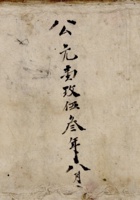 公元壹玖伍叁年八月